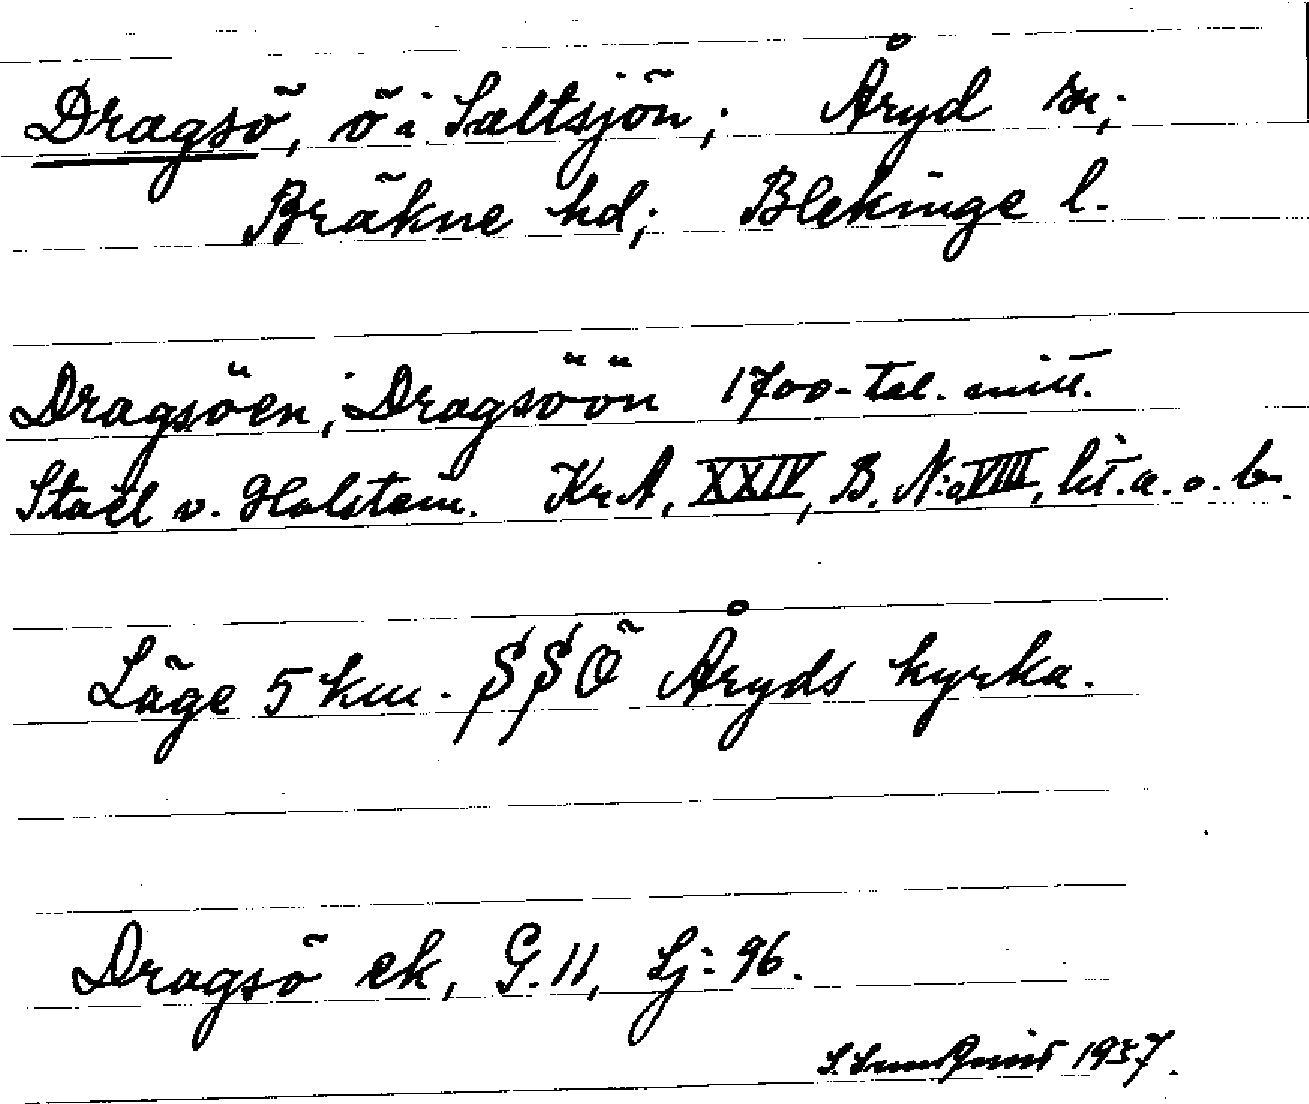 Dragsö, ö i Saltsjön; Åryd sn;
Bräkne hd; Blekinge l.
Dragsöen, Dragsöön 1700-tal. mitt.
Stael v. Holstein. KrA, XXIV, B. N:o VIII, lit. a. o. b.
Läge 5 km. SSÖ Åryds kyrka.
Dragsö ek, G. 11, Lj: 96.
1937.